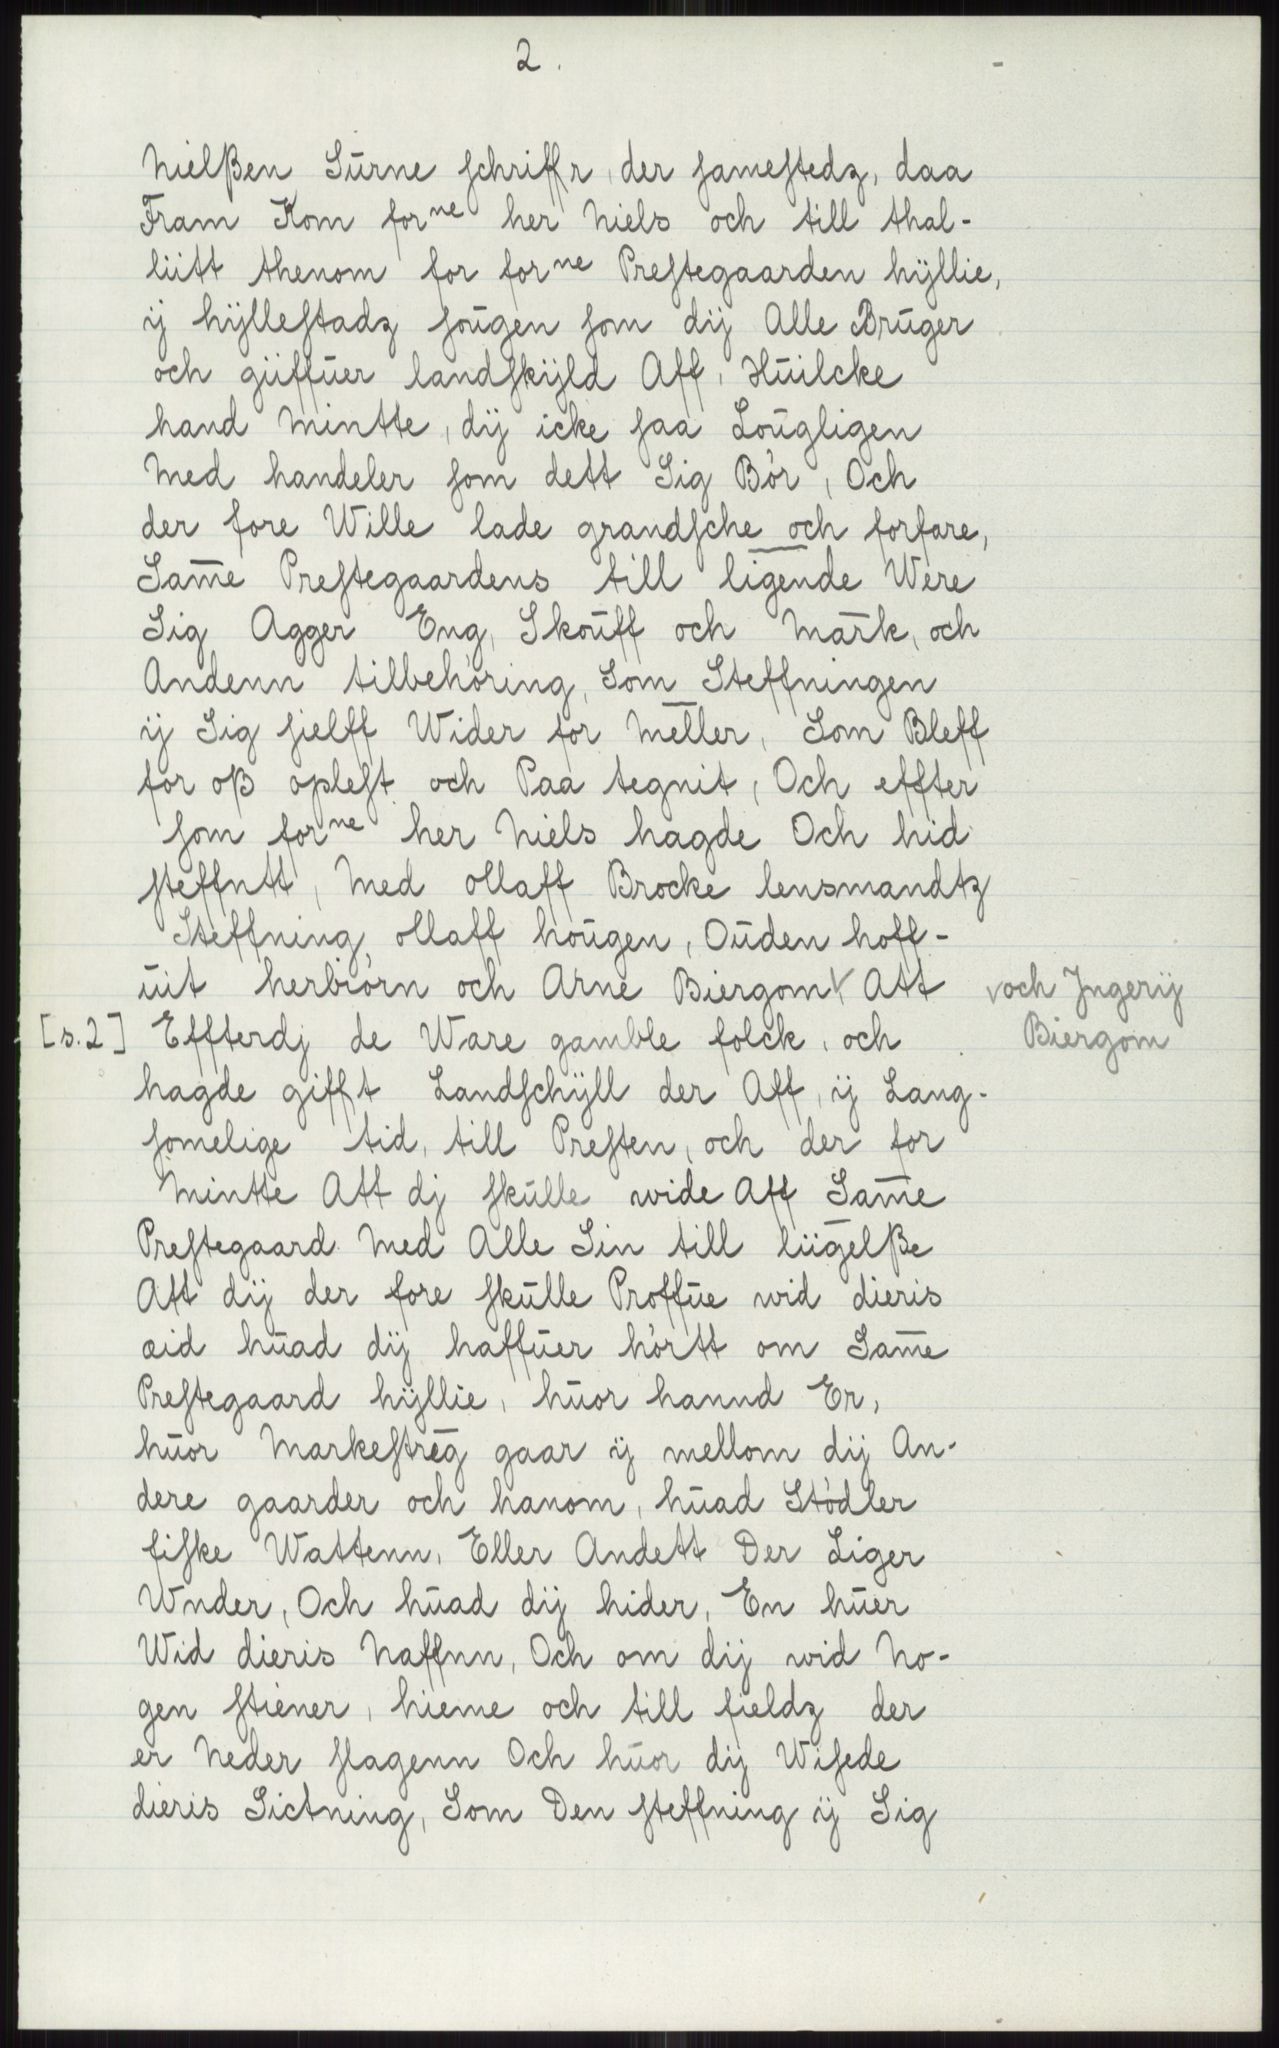 2.
Nielßen Sūrne schriffr, der samestedz, daa
Fram Kom forne her Niels och till thal-
liitt thenom for forne Prestegaarden hÿllie,
ij hÿllestadz sougen som dij Alle Brūger
och giiffuer landskÿld Aff, Hūilcke
hand Mintte, dij icke saa Loūgligen
Med handeler som dett Sig Bör, Och
der fore Wille lade grandsche och forfare,
Same Prestegaardens till ligende Were
Sig Agger Eng, Skoūff och Mark, och
Andenn tilbehöring, Som Steffningen
ij Sig sielff Wider for Meller, Som Bleff
for oß oplest och Paa tegnit, Och effter
som forne her Niels hagde Och hid
steffntt, Med ollaff Brocke lensmandtz
Steffning, ollaff hoūgen, Oūden hoff-
uit herbiörn och Arne Biergom √ Att √och Jngerij
Biergom
[s.2] Effterdj de Ware gamble folck, och
hagde gifft Landschÿll der Aff, ij Lang-
somelige tid, till Presten, och der for
Mintte Att dj skūlle wide Aff Same
Prestegaard Med Alle Sin till liigelße
Att dij der fore skūlle Proffūe wid dieris
æid hūad dij haffūer hörtt om Same
Prestegaard hÿllie, hūor hannd Er,
hūor Markestreg gaar ij mellom dij An-
dere gaarder och hanom, hūad Stödler
fiske Wattenn, Eller Andett Der Liger
Wnder, Och hūad dij hider, En hūer
Wid dieris Naffnn, Och om dij wid No-
gen stiener, hieme och till fieldz der
er Neder slagenn Och hūor dij Wisede
dieris Sictning, Som Den steffning ij Sig